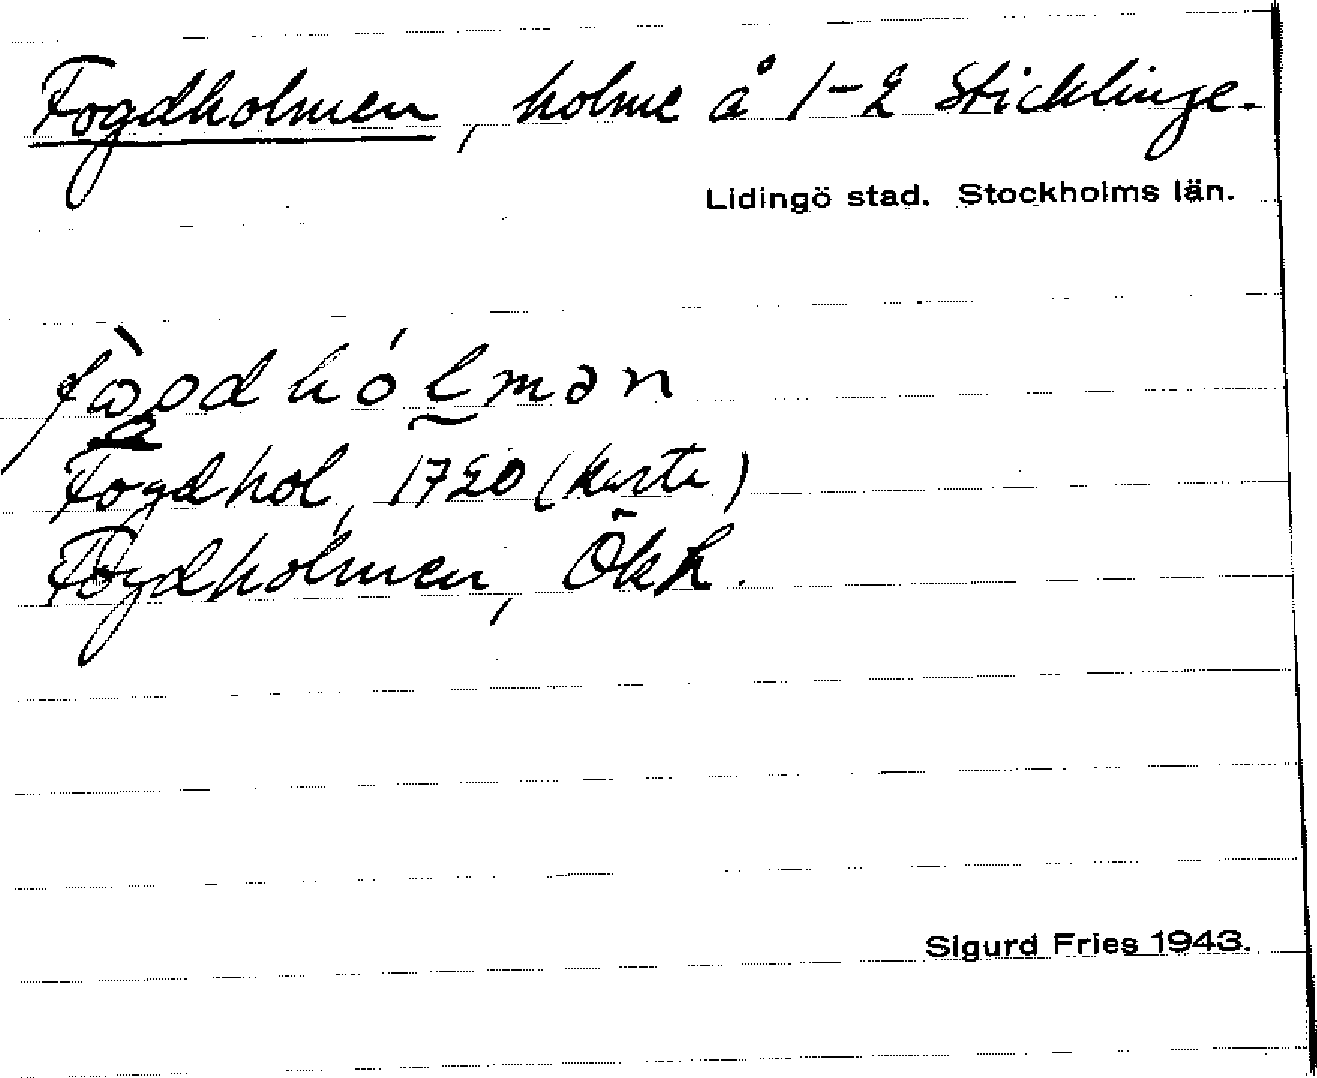 Fogdholmen, holme å 1-2 Sticklinge.
Lidingö stad. Stockholms län.
Fogdhol, 1720 (karta)
Fogdholmen, ÖkK.
Sigurd Fries 1943.